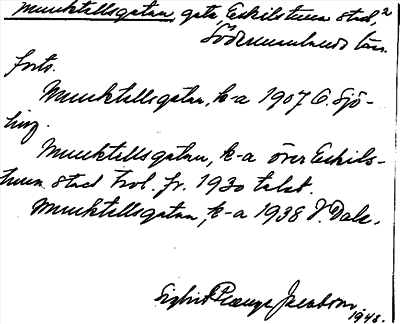 Munktellsgatan, gata, Eskilstuna stad, 2
Södermanlands län.
forts.
Munktellsgatan, k-a 1907 C. Sjö-
berg.
Munktellsgatan, k-a över Eskils-
tuna stad trol. fr. 1930 talet.
Munktellsgatan, k-a 1938 V. Dale.
Sigbrit Plænge Jacobson
1948.